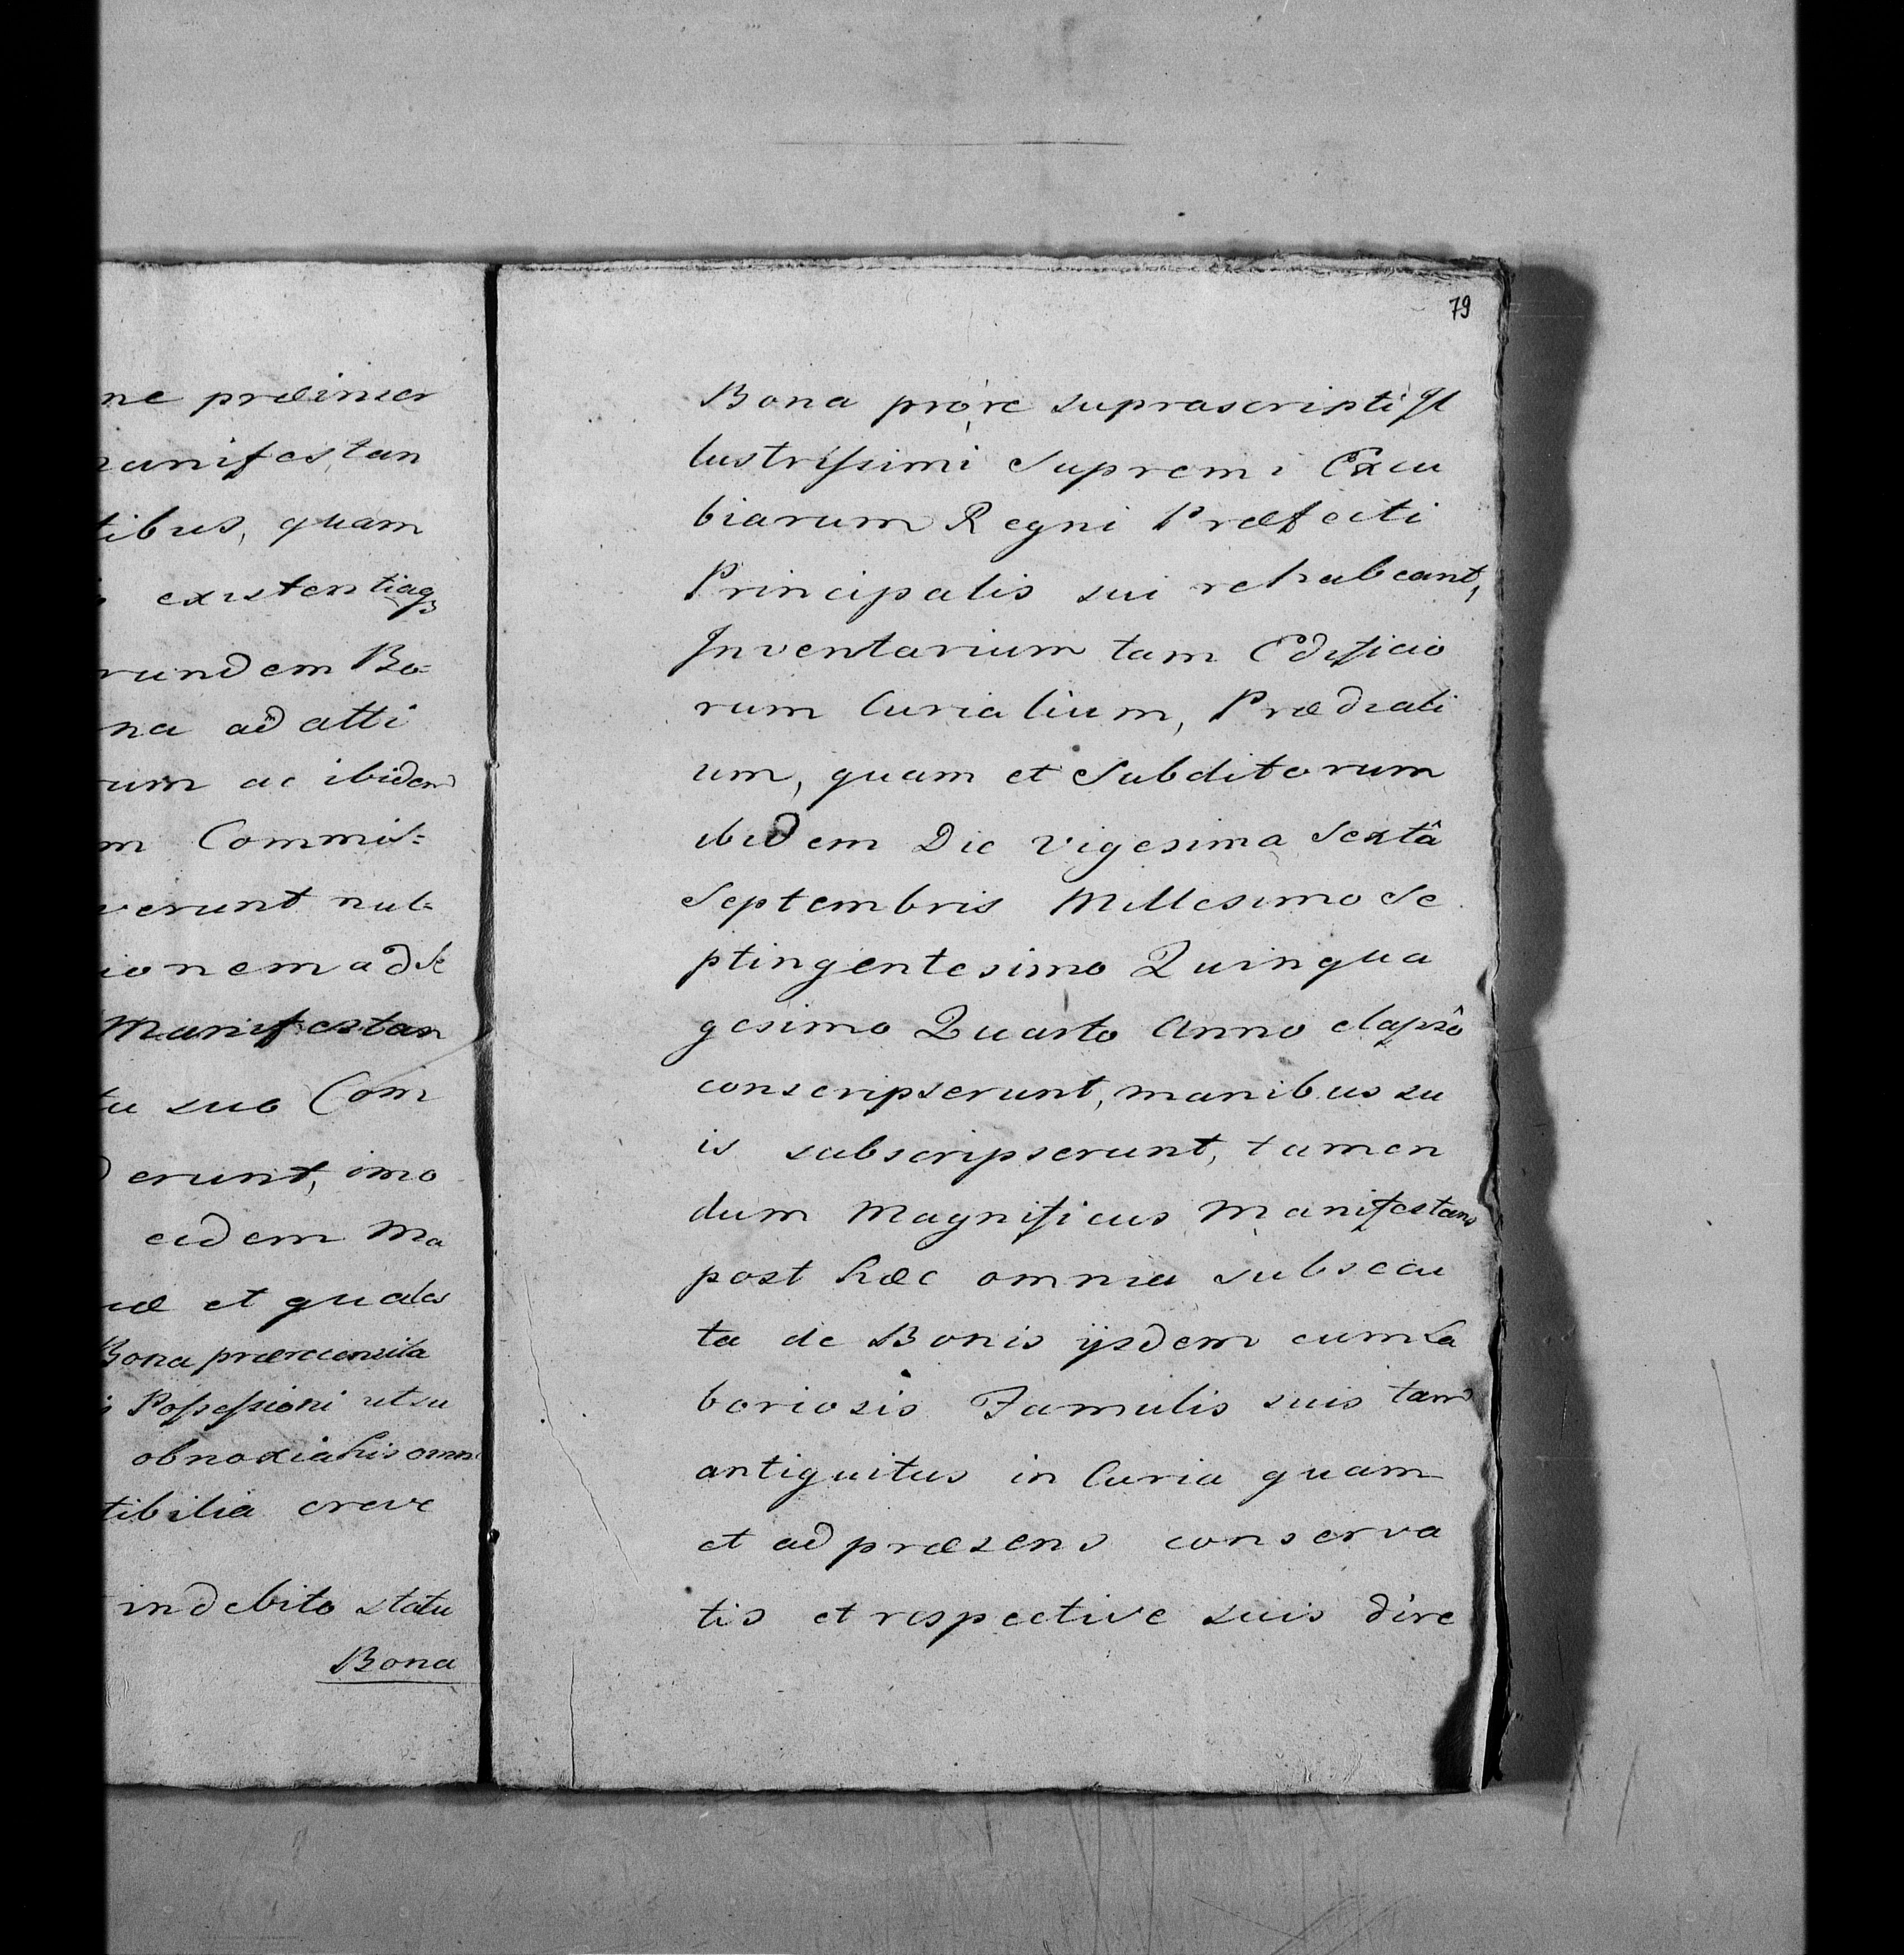 ne præinser
manifestan
tibus, quam
existentiaqꝫ
rundem Bo-
na ad atti
rum ac ibidem
m Commis-
verunt nul-
ionem adSe
Manifestan
tu suo Com
erunt, imo
eidem Ma
uæ et quales
Bona prærecensita
Possessioni utsu
obnoxia his omni
tibilia creve
indebito statu
Bona
79
Bona pro re suprascripti Il
lustrissimi Supremi Excu
biarum Regni Præfecti
Principalis sui rehabeant,
Inventarium tam Edificio
rum Curialium, Prædiali
um, quam et Subditorum
ibidem Die vigesima Sextâ
Septembris Millesimo Se
ptingentesimo Quinqua
gesimo Quarto Anno elapsô
conscripserunt, manibus su
is subscripserunt, tamen
dum Magnificus Manifestans
post hæc omnia subsecu
ta de Bonis ijsdem cum La
boriosis Famulis suis tam
antiquitus in Curia quam
et ad præsens conserva
tis et respective suis dire